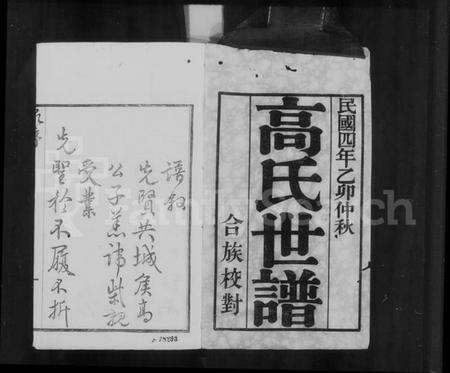 民國四年乙卯仲秋
高氏世譜
合族校對
譜敘
先賢共城侯高
公子羔諱柴親
受業
先聖於不履不折
FamilySearch